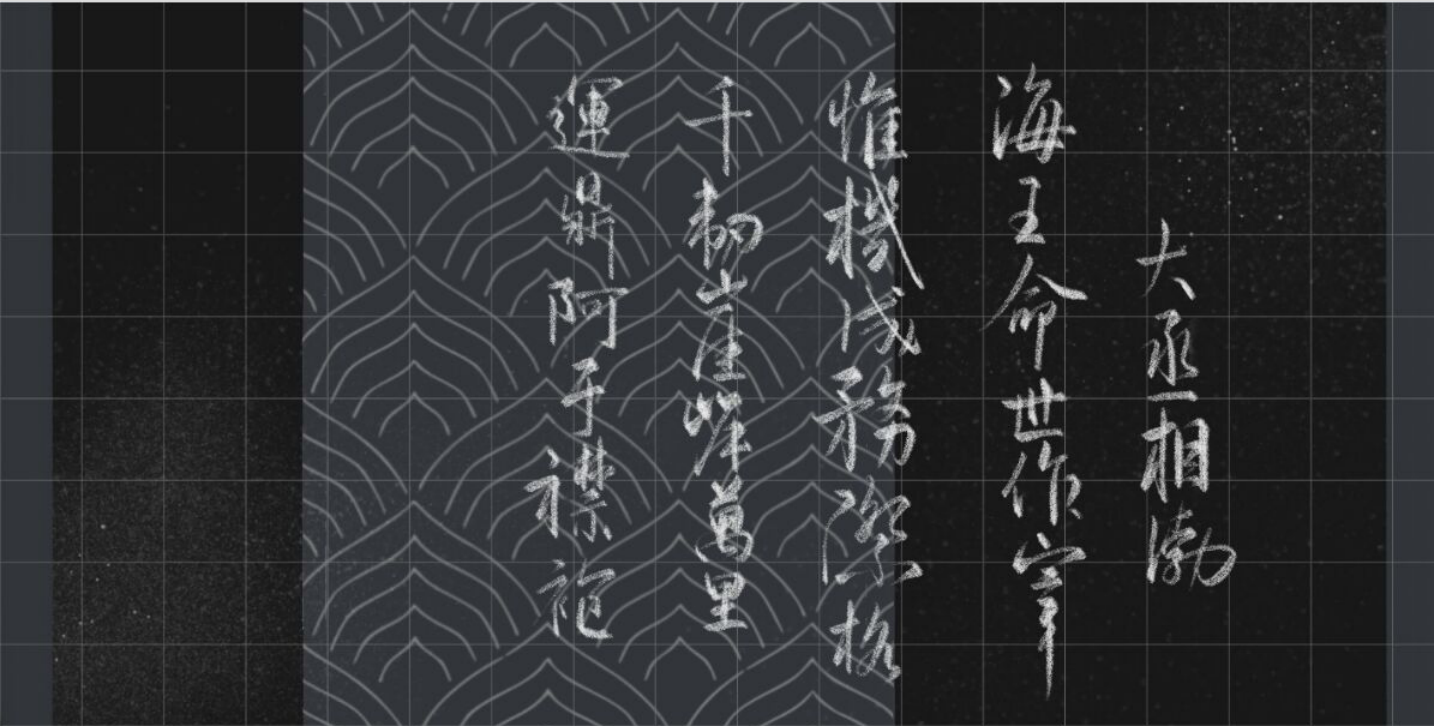 大丞相渤
海王命世作宰
惟機成務際格
千韌崖岸萬里
運鼎阿于襟袍